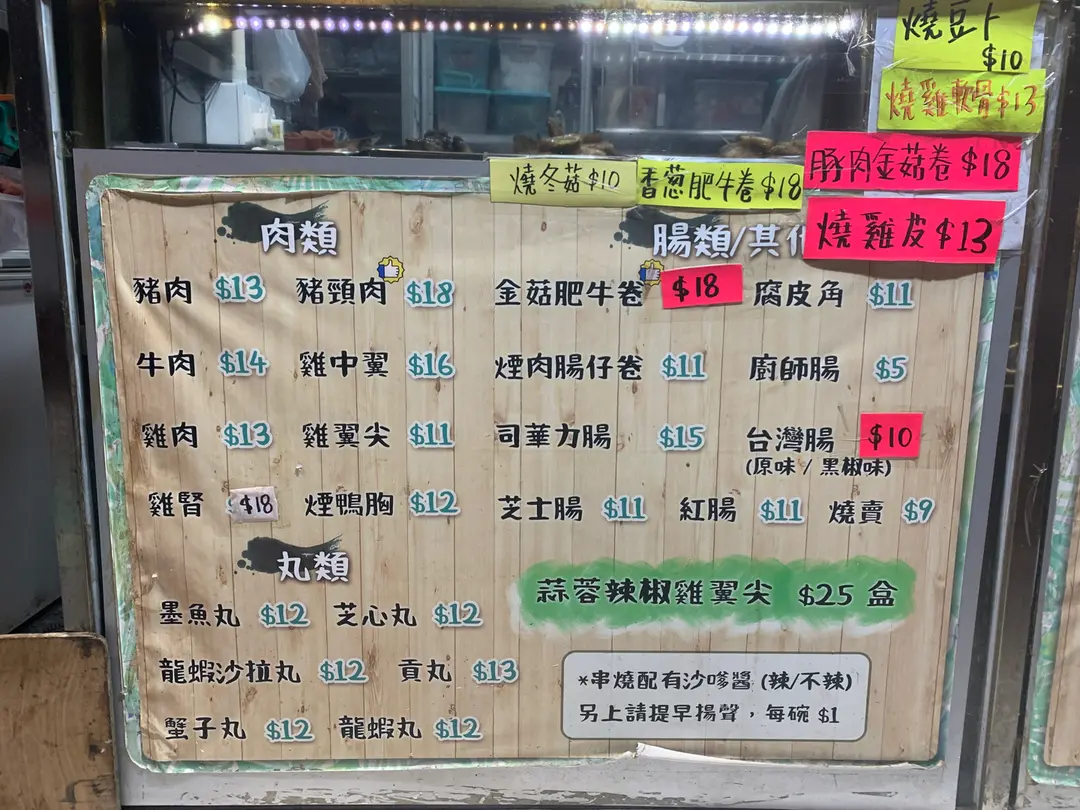 燒豆卜
$10
燒雞軟骨$13
豚肉金菇卷$18
燒冬菇$10
香葱肥牛卷$18
燒雞皮$13
肉類
豬肉 $13 豬頸肉 $18
牛肉 $14 雞中翼 $16
雞肉 $13 雞翼尖 $11
雞腎 $18 煙鴨胸 $12
丸類
墨魚丸 $12 芝心丸 $12
龍蝦沙拉丸 $12 貢丸 $13
蟹子丸 $12 龍蝦丸 $12
腸類/其
金菇肥牛卷 $18 腐皮角 $11
煙肉腸仔卷 $11 廚師腸 $5
司華力腸 $15 台灣腸 $10
(原味 / 黑椒味)
芝士腸 $11 紅腸 $11 燒賣 $9
蒜蓉辣椒雞翼尖 $25 盒
*串燒配有沙嗲醬 (辣/不辣)
另上請提早揚聲，每碗 $1